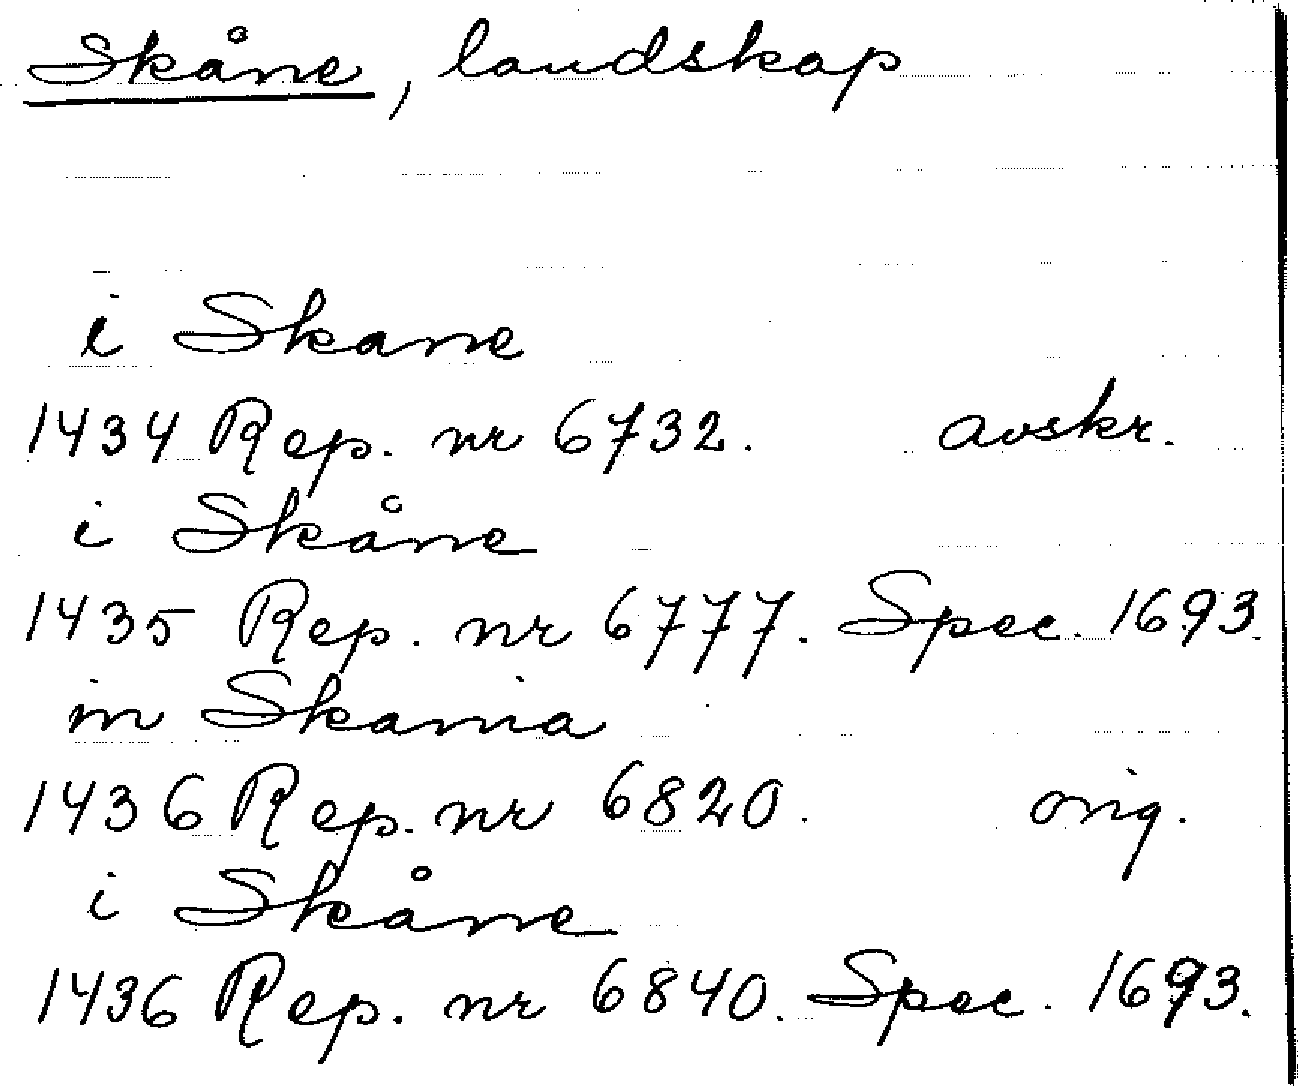 Skåne, landskap
i Skane
1434 Rep. nr 6732. avskr.
i Skåne
1435 Rep. nr 6777. Spec. 1693.
in Skania
1436 Rep. nr 6820. orig.
i Skåne
1436 Rep. nr 6840. Spec. 1693.